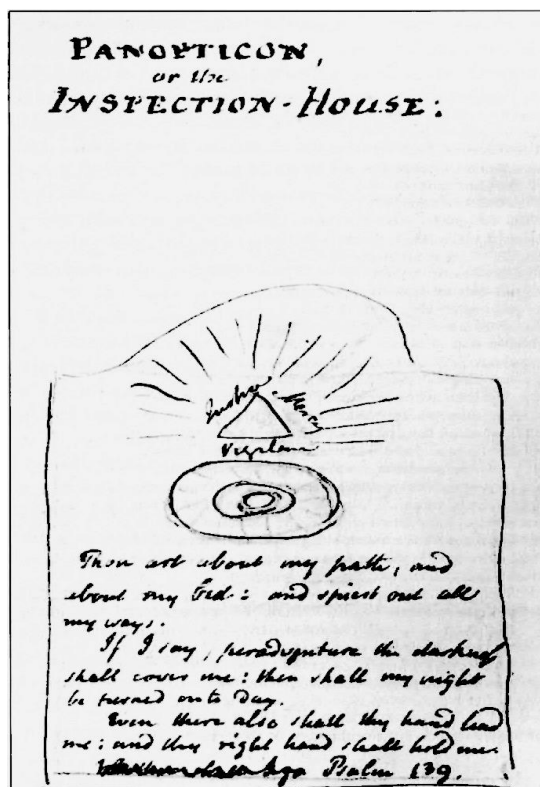 PANOPTICON,
or the
INSPECTION-HOUSE:
Justice
Mercy
Vigilance
Thou art about my path, and
about my bed: and spiest out all
my ways.
If I say, peradventure the darkness
shall cover me: then shall my night
be turned onto day.
Even there also shall thy hand lead
me; and thy right hand shall hold me.
Psalm 139.